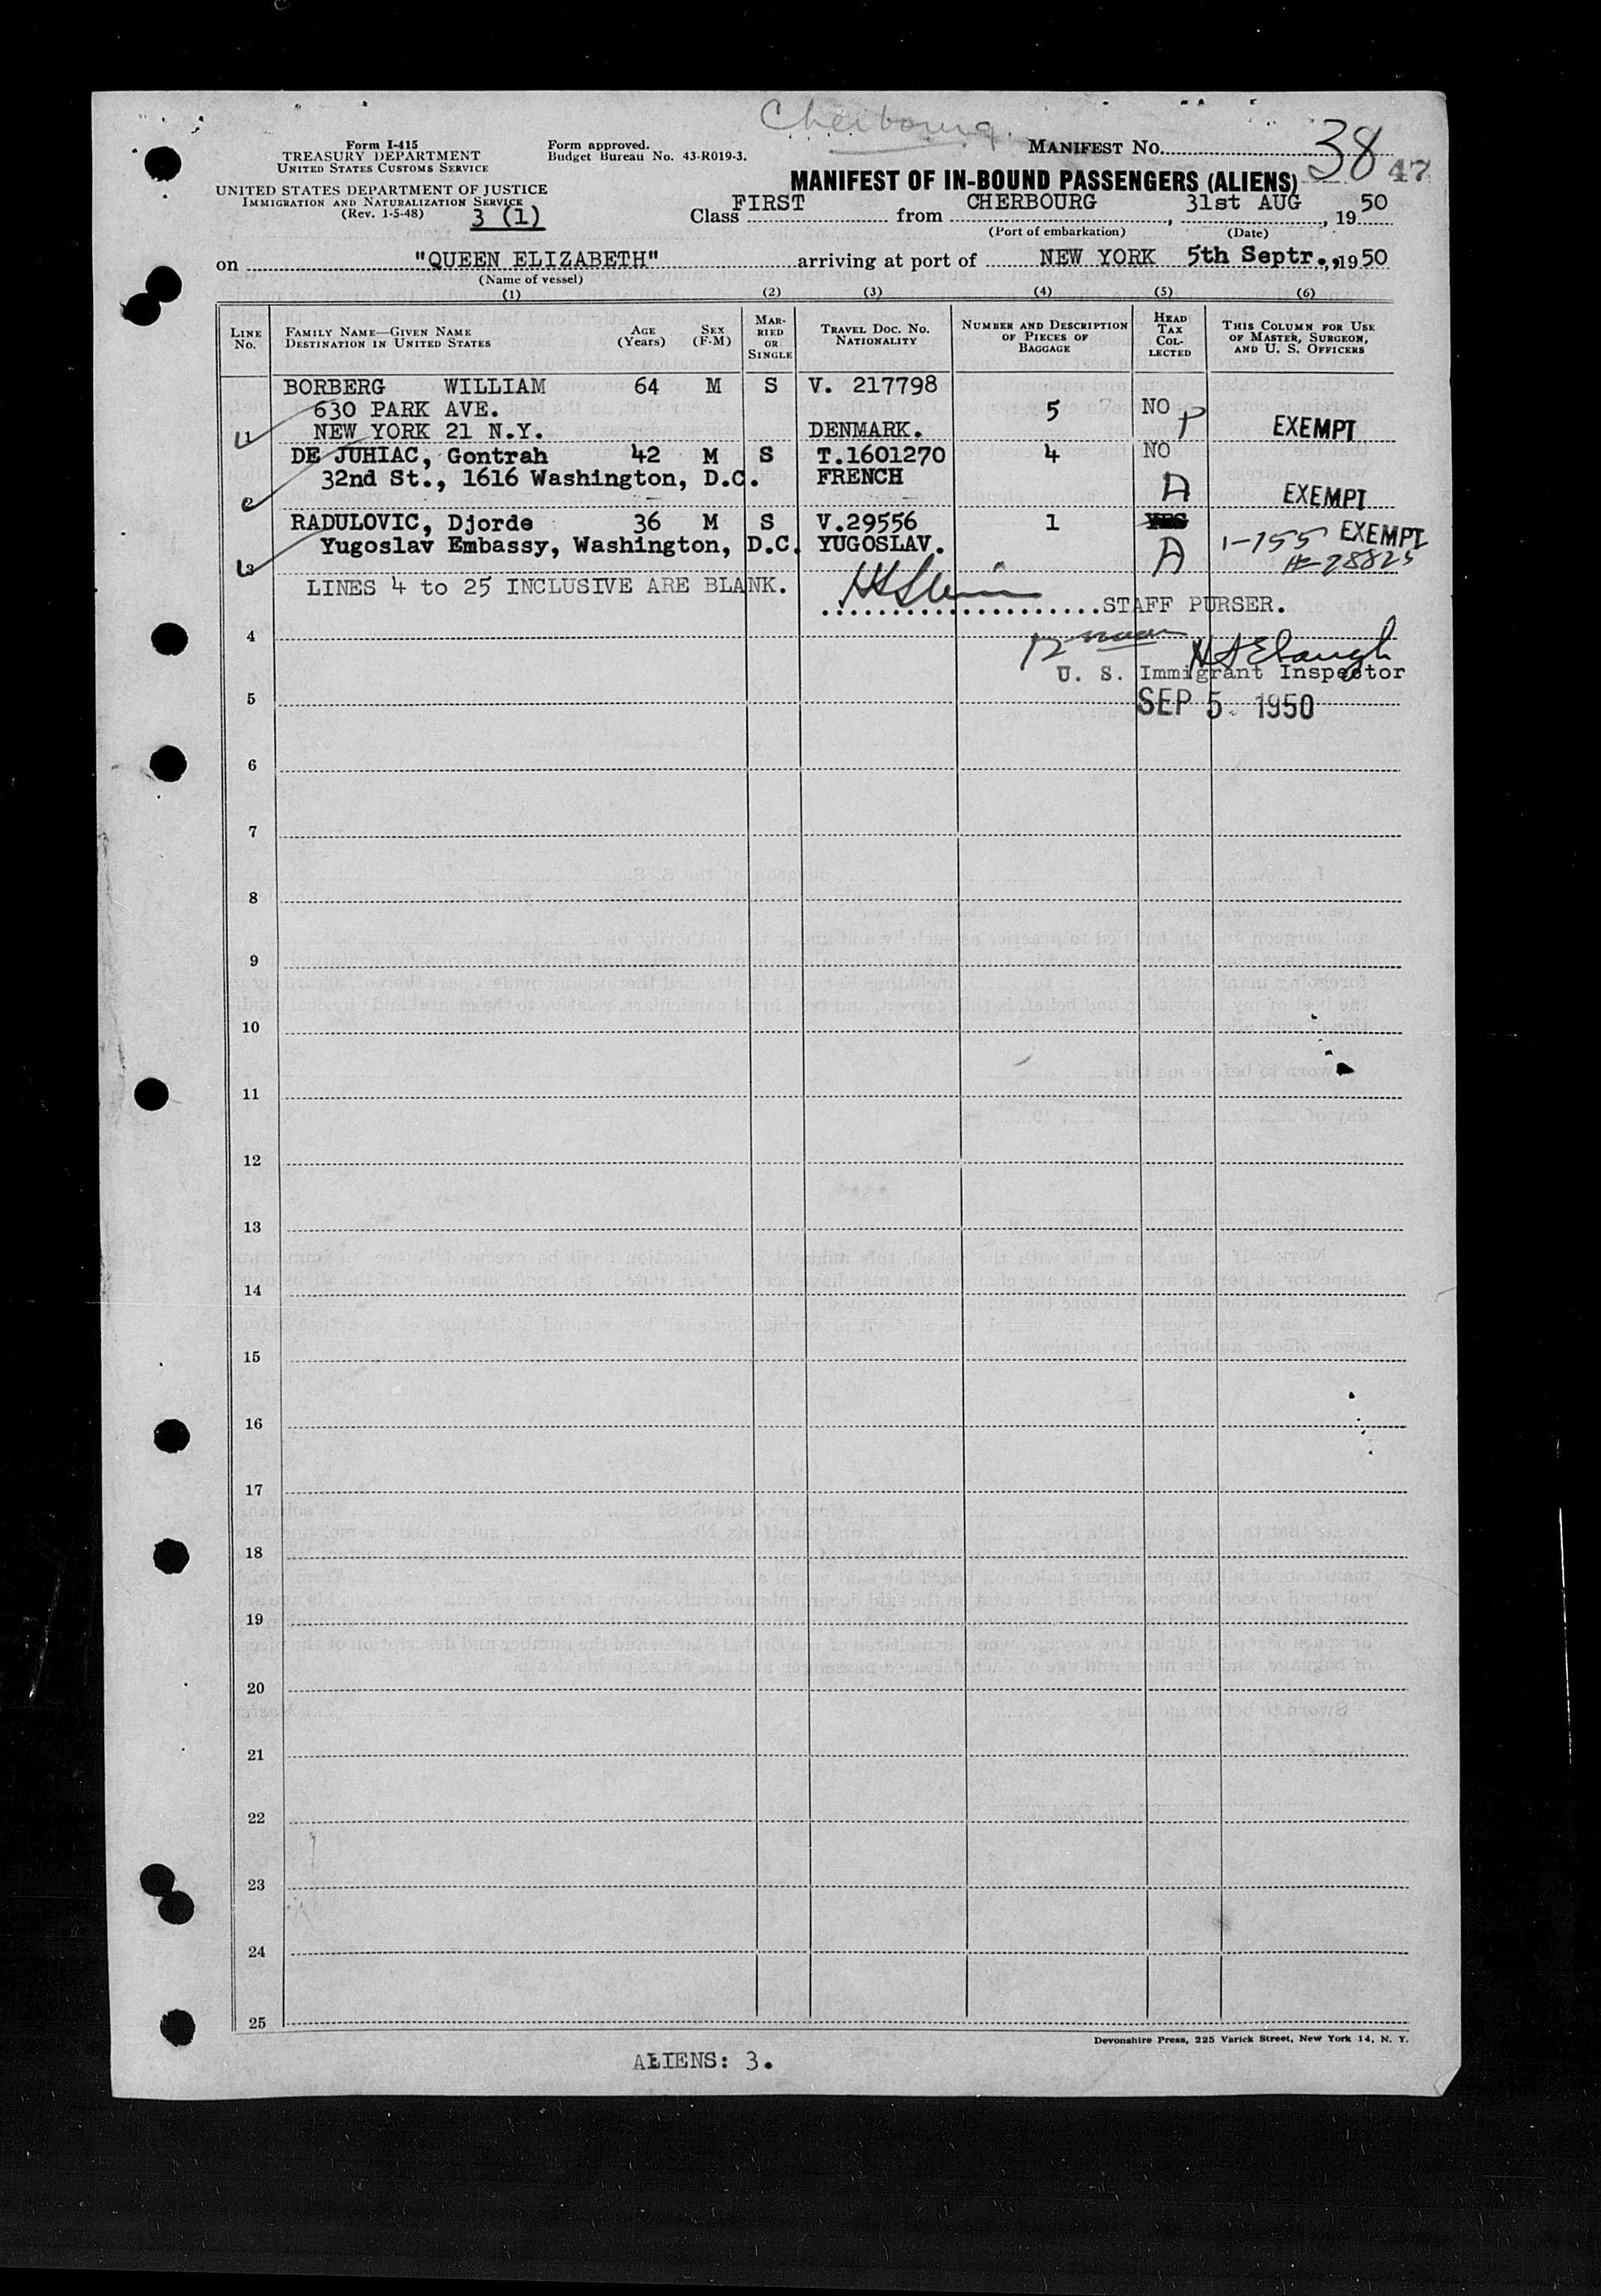 Cherbourg.
Form I-415
TREASURY DEPARTMENT
UNITED STATES CUSTOMS SERVICE
Form approved.
Budget Bureau No. 43-R019-3.
MANIFEST NO. 38 47
UNITED STATES DEPARTMENT OF JUSTICE
IMMIGRATION AND NATURALIZATION SERVICE
(Rev. 1-5-48) 3 (1)
MANIFEST OF IN-BOUND PASSENGERS (ALIENS)
Class FIRST from CHERBOURG, 31st AUG, 1950
(Port of embarkation) (Date)
on "QUEEN ELIZABETH" arriving at port of NEW YORK 5th Septr., 1950
(Name of vessel)
(1) (2) (3) (4) (5) (6)
LINE NO.
FAMILY NAME—GIVEN NAME
DESTINATION IN UNITED STATES
AGE (Years)
SEX (F-M)
MARRIED OR SINGLE
TRAVEL DOC. NO.
NATIONALITY
NUMBER AND DESCRIPTION
OF PIECES OF
BAGGAGE
HEAD TAX COLLECTED
THIS COLUMN FOR USE
OF MASTER, SURGEON,
AND U. S. OFFICERS
BORBERG WILLIAM 64 M S V. 217798
630 PARK AVE. 5 NO P
1 NEW YORK 21 N.Y. DENMARK. EXEMPT
DE JUHIAC, Gontrah 42 M S T.1601270 4 NO
32nd St., 1616 Washington, D.C. FRENCH
2 A EXEMPT
RADULOVIC, Djorde 36 M S V.29556 1 YES 1-155 EXEMPT
Yugoslav Embassy, Washington, D.C. YUGOSLAV. A #-28825
3
LINES 4 to 25 INCLUSIVE ARE BLANK. STAFF PURSER.
4 12 noon
U. S. Immigrant Inspector
5 SEP 5 1950
6
7
8
9
10
11
12
13
14
15
16
17
18
19
20
21
22
23
24
25
Devonshire Press, 225 Varick Street, New York 14, N. Y.
ALIENS: 3.